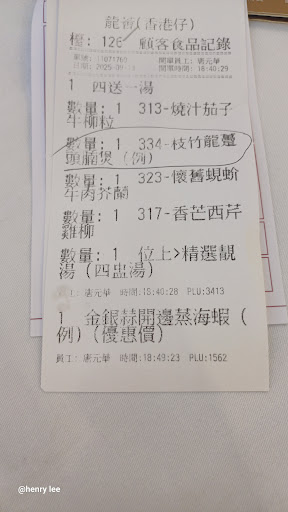 龍薈(香港仔)
檯: 126 顧客食品記錄
單號: 11071760 開單員工: 唐元華
開單時間: 18:40:29
1 四送一湯
數量: 1 313-燒汁茄子
牛柳粒
數量: 1 334-枝竹龍躉
頭腩煲(例)
數量: 1 323-懷舊蜆蚧
牛肉芥蘭
數量: 1 317-香芒西芹
雞柳
數量: 1 位上>精選靚
湯(四出湯)
員工: 唐元華 時間:18:40:28 PLU:3413
1 金銀蒜開邊蒸海蝦(
例)(優惠價)
員工: 唐元華 時間:18:49:23 PLU:1562
@henry lee